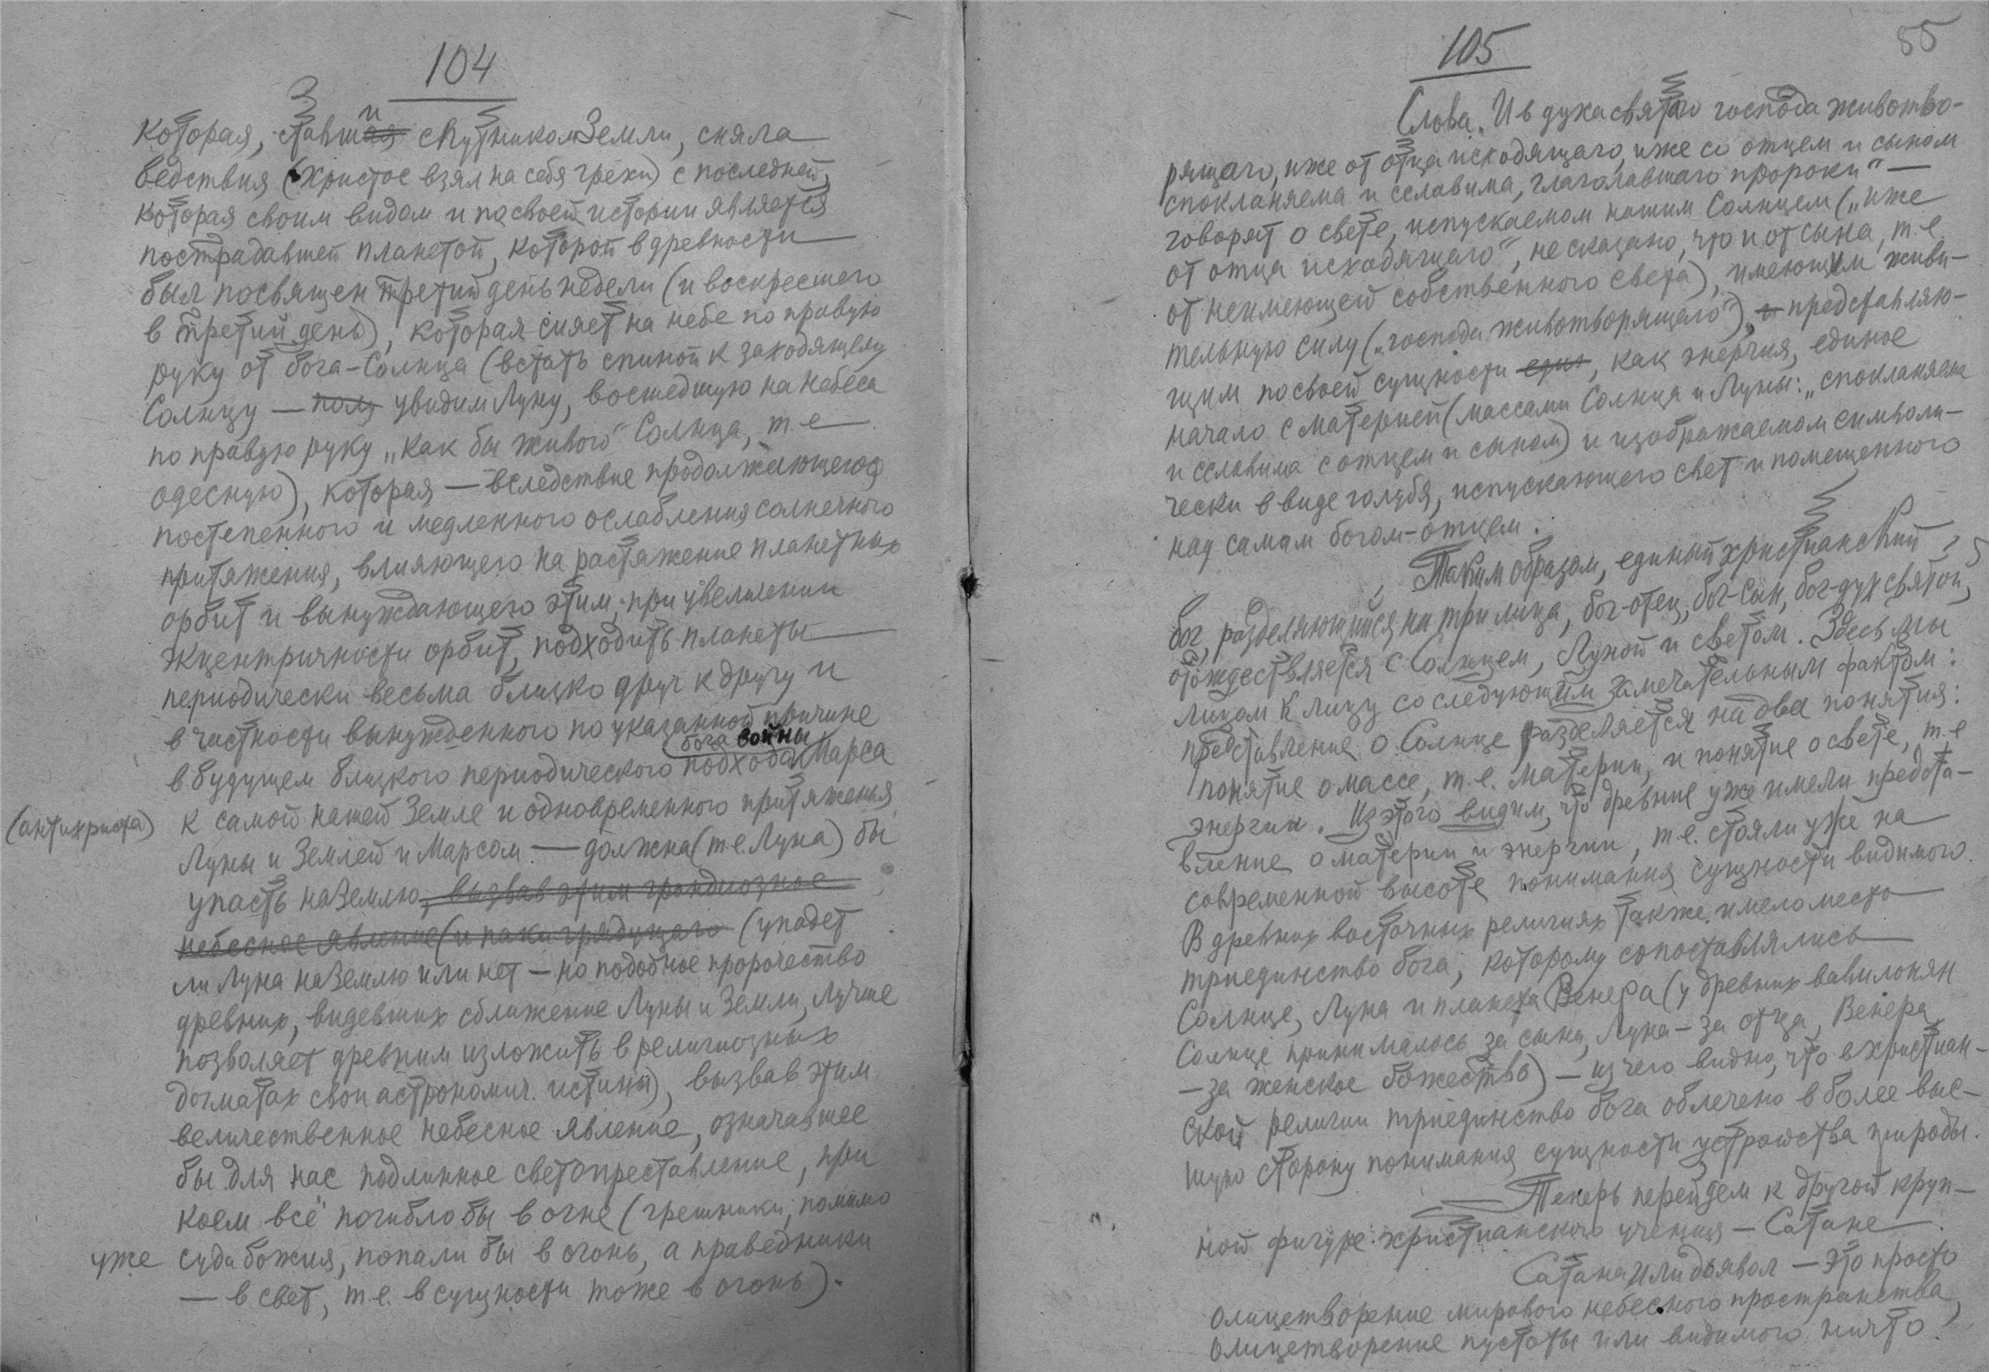 104
которая, ставши спутником Земли, сняла
бедствия (Христос взял на себя грехи) с последней,
которая своим видом и по своей истории является
пострадавшей планетой, которой в древности
был посвящен третий день недели (и воскресшего
в третий день), которая сияет на небе по правую
руку от бога-Солнца (встать спиной к заходящему
Солнцу — полу увидим Луну, восшедшую на небеса
по правую руку „как бы живого" Солнца, т.е
одесную), которая — вследствие продолжающегося
постепенного и медленного ослабления солнечного
притяжения, влияющего на растяжение планетных
орбит и вынуждающего этим, при увеличении
эксцентричности орбит, подходить планеты
периодически весьма близко друг к другу и
в частности вынужденного по указанной причине
в будущем близкого периодического подхода бога войны Марса
(антихриста) к самой нашей Земле и одновременного притяжения
Луны и Землей и Марсом — должна (т.е. Луна) бы
упасть на Землю, вызвав этим грандиозное
небесное явление (и паки грядущаго (упадет
ли Луна на Землю или нет — но подобное пророчество
древних, видевших сближение Луны и Земли, лучше
позволяет древним изложить в религиозных
догматах свои астрономич. истины), вызвав этим
величественное небесное явление, означавшее
бы для нас подлинное светопреставление, при
коем всё погибло бы в огне (грешники, помимо
уже суда божия, попали бы в огонь, а праведники
— в свет, т.е. в сущности тоже в огонь).
105
55
Слова „И в духа святаго господа животво-
рящаго, иже от отца исходящаго, иже со отцем и сыном
спокланяема и сславима, глаголавшаго пророки" —
говорят о свете, испускаемом нашим Солнцем („иже
от отца исходящаго", не сказано, что и от сына, т.е.
от неимеющей собственного света), имеющим живи-
тельную силу („господа животворящаго"), и представляю-
щим по своей сущности един, как энергия, единое
начало с материей (массами Солнца и Луны: „спокланяема
и сславима с отцем и сыном) и изображаемом символи-
чески в виде голубя, испускающего свет и помещенного
над самым богом-отцем.
Таким образом, единый христианский
бог, разделяющийся на три лица, бог-отец, бог-сын, бог-дух святой,
отождествляется с Солнцем, Луной и светом. Здесь мы
лицом к лицу со следующим замечательным фактом:
представление о Солнце разделяется на два понятия:
понятие о массе, т.е. материи, и понятие о свете, т.е
энергии. Из этого видим, что древние уже имели предста-
вление о материи и энергии, т.е. стояли уже на
современной высоте понимания сущности видимого.
В древних восточных религиях также имело место
триединство бога, которому сопоставлялись
Солнце, Луна и планета Венера (у древних вавилонян
Солнце принималось за сына, Луна — за отца, Венера
— за женское божество) — из чего видно, что в христиан-
ской религии триединство бога облечено в более выс-
шую сторону понимания сущности устройства природы.
Теперь перейдем к другой круп-
ной фигуре христианского учения — Сатане.
Сатана или дьявол — это просто
олицетворение мирового небесного пространства,
олицетворение пустоты или видимого ничто.